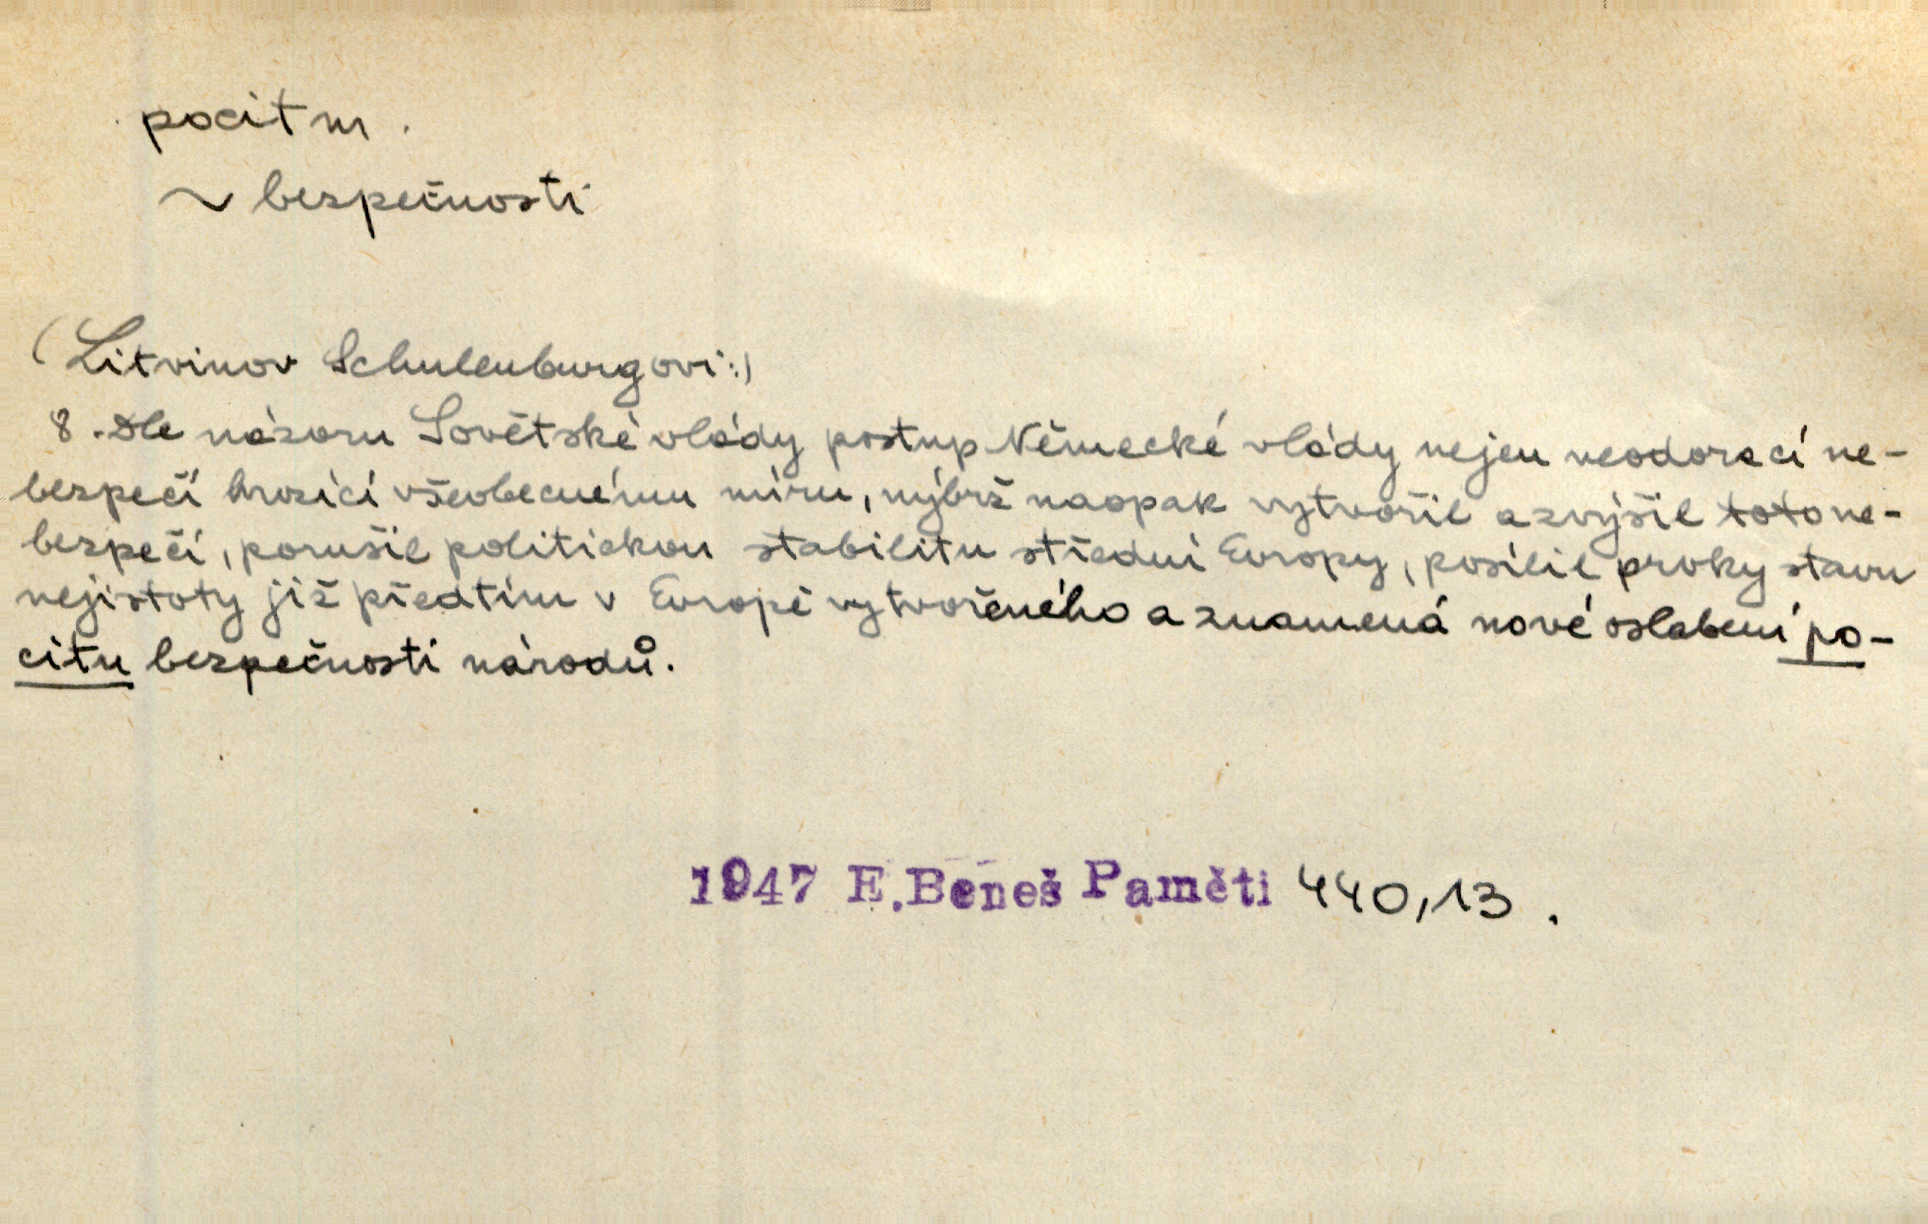 pocit m.
~ bezpečnosti
(Litvinov Schulenburgovi:)
8. Dle názoru Sovětské vlády postup Německé vlády nejen neodvrací ne-
bezpečí hrozící všeobecnému míru, nýbrž naopak vytvořil a zvýšil toto ne-
bezpečí, porušil politickou stabilitu střední Evropy, posílil prvky stavu
nejistoty již předtím v Evropě vytvořeného a znamená nové oslabení po-
citu bezpečnosti národů.
1947 E.Beneš Paměti 440,13.